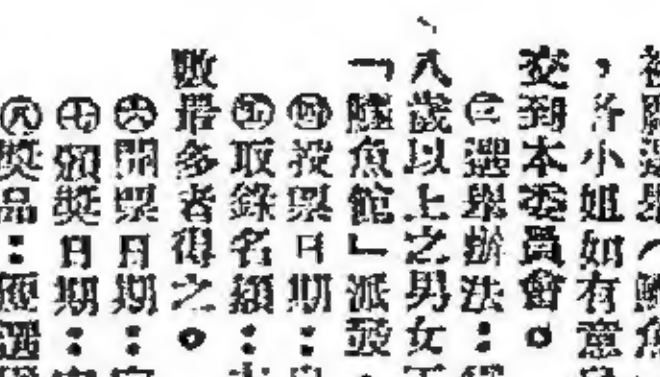 ，各小姐如有意
交到本委員會。
㊂選舉辦法：
、八歲以上之男女
「鱷魚館」派發
㊃投票日期：
㊄取錄名額：
數最多者得之。
㊅開票日期：
㊆頒獎日期：
㊇獎品：應選